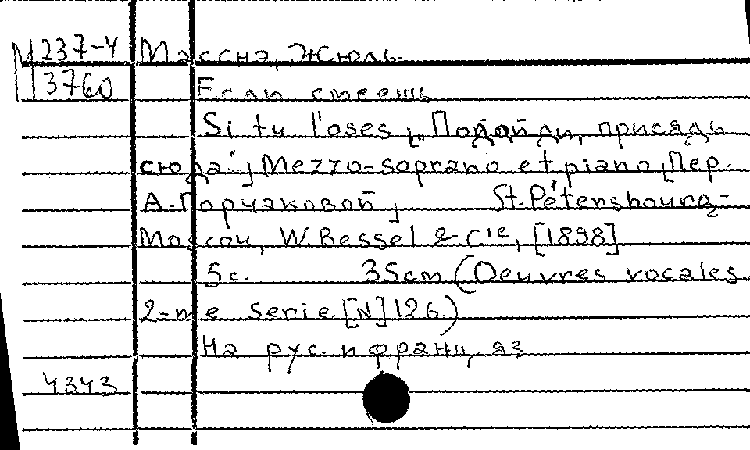 М 237-4 Массна, Жюль.
3760 Если смеешь
Si tu l'oses „Подойди, присядь
сюда"; Mezzo-soprano et piano; Пер.
А. Горчаковой; St. Pétersbourg-
Moscou, W. Bessel & Cie, [1898]
5 с. 35 cm (Oeuvres vocales
2-me Serie [N] 126)
На рус. и франц. яз
4343